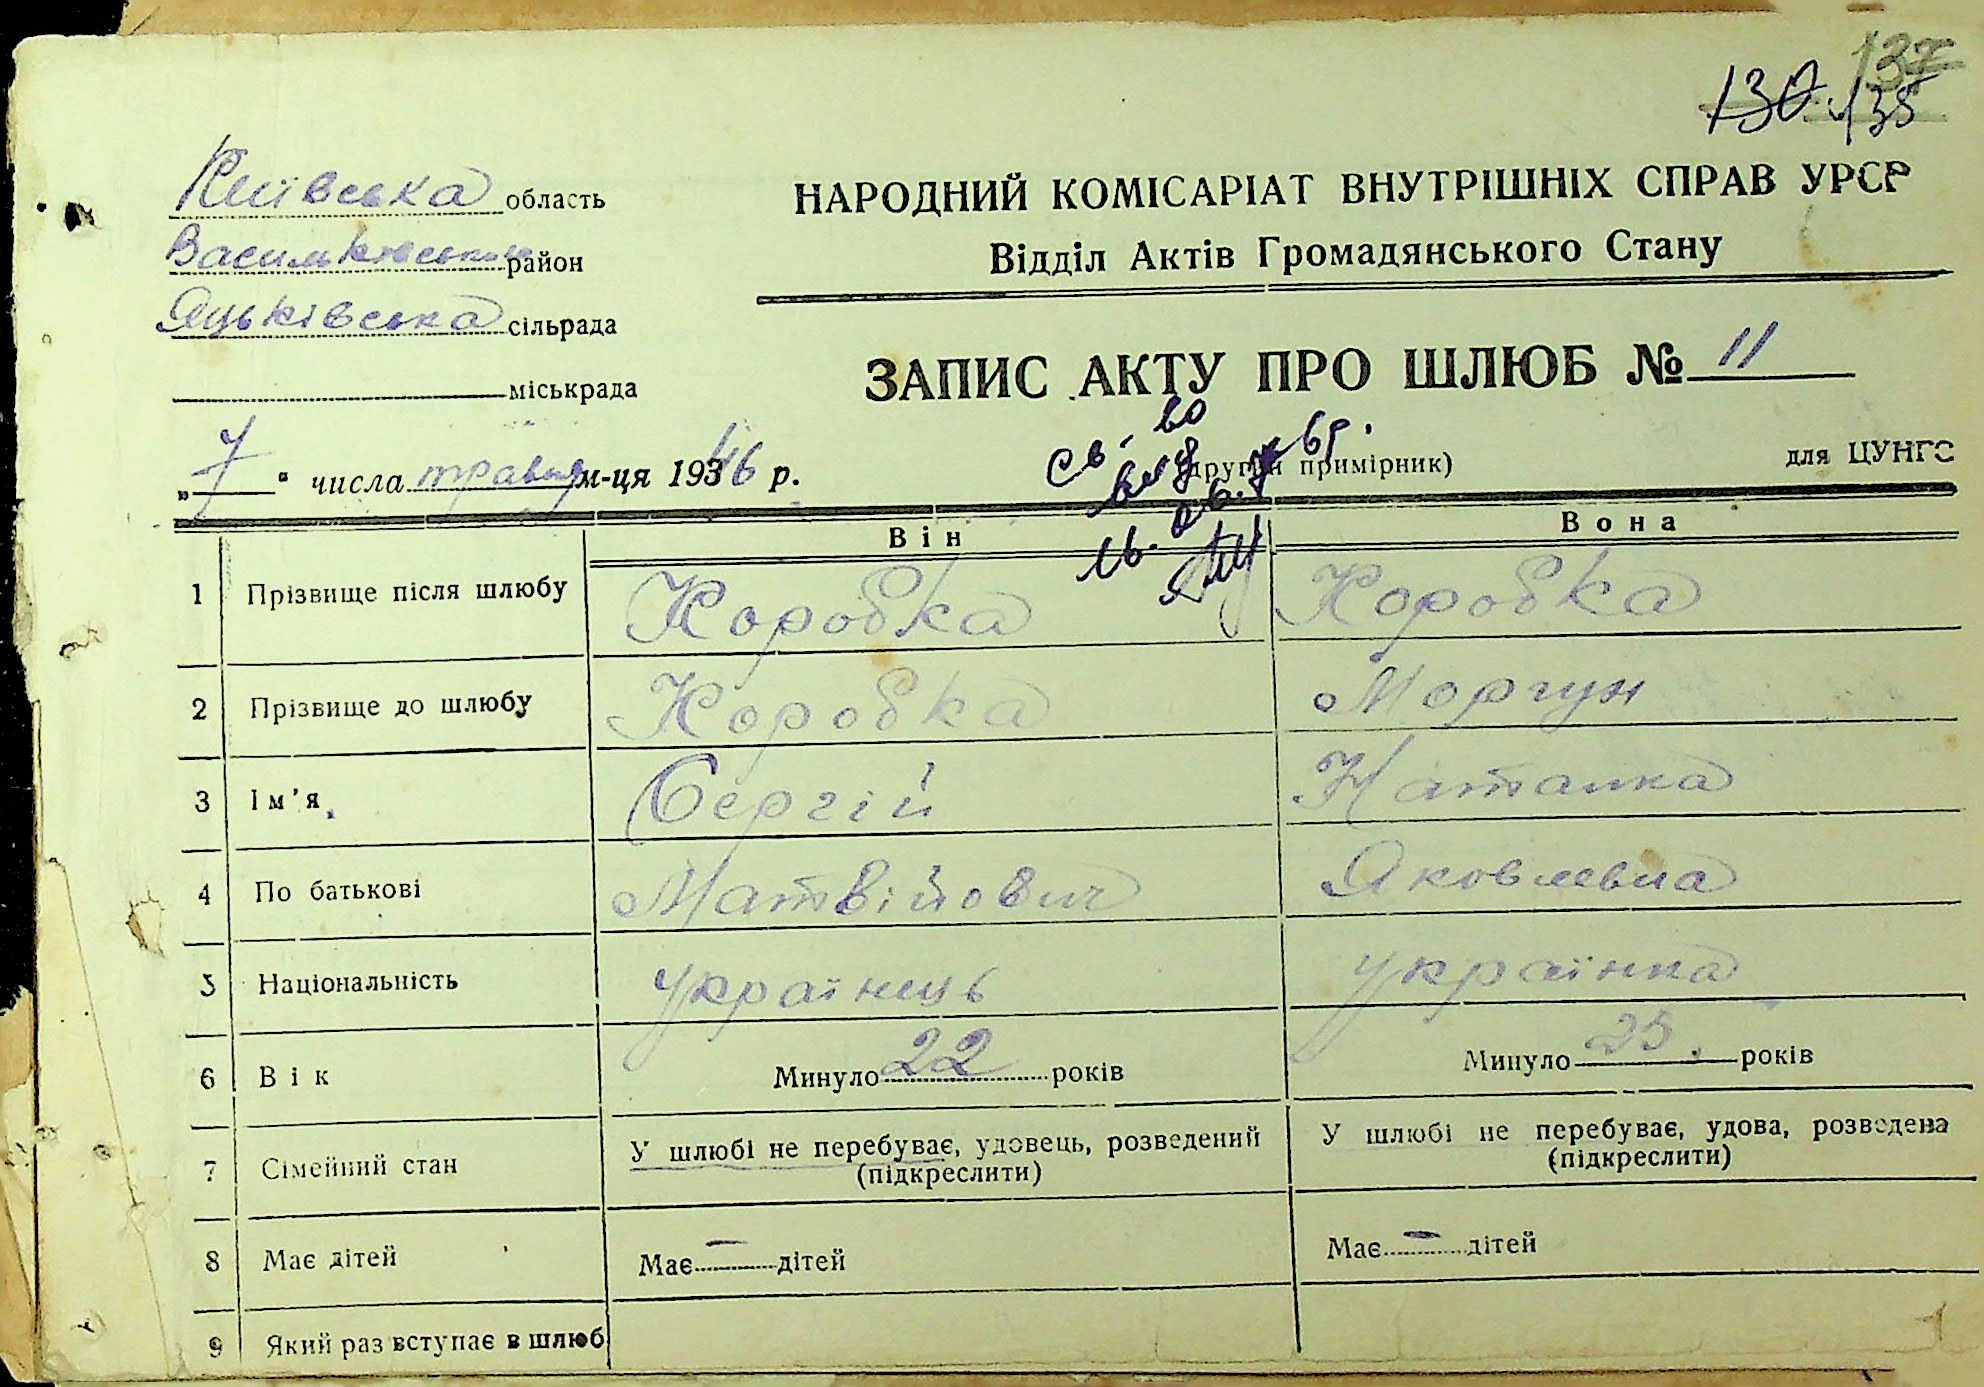 137
130 138
Київська область
Васильківський район
Яцьківська сільрада
міськрада
НАРОДНИЙ КОМІСАРІАТ ВНУТРІШНІХ СПРАВ УРСР
Відділ Актів Громадянського Стану
ЗАПИС АКТУ ПРО ШЛЮБ № 11
„7“ числа травня м-ця 1946 р.
(другий примірник)
для ЦУНГО
Він Вона
1 Прізвище після шлюбу Коробка Коробка
2 Прізвище до шлюбу Коробка Моргун
3 Ім'я Сергій Наталка
4 По батькові Матвійович Яковлевна
5 Національність українець українка
6 Вік Минуло 22 років Минуло 25 років
7 Сімейний стан У шлюбі не перебуває, удовець, розведений У шлюбі не перебуває, удова, розведена
(підкреслити) (підкреслити)
8 Має дітей Має — дітей Має — дітей
9 Який раз вступає в шлюб